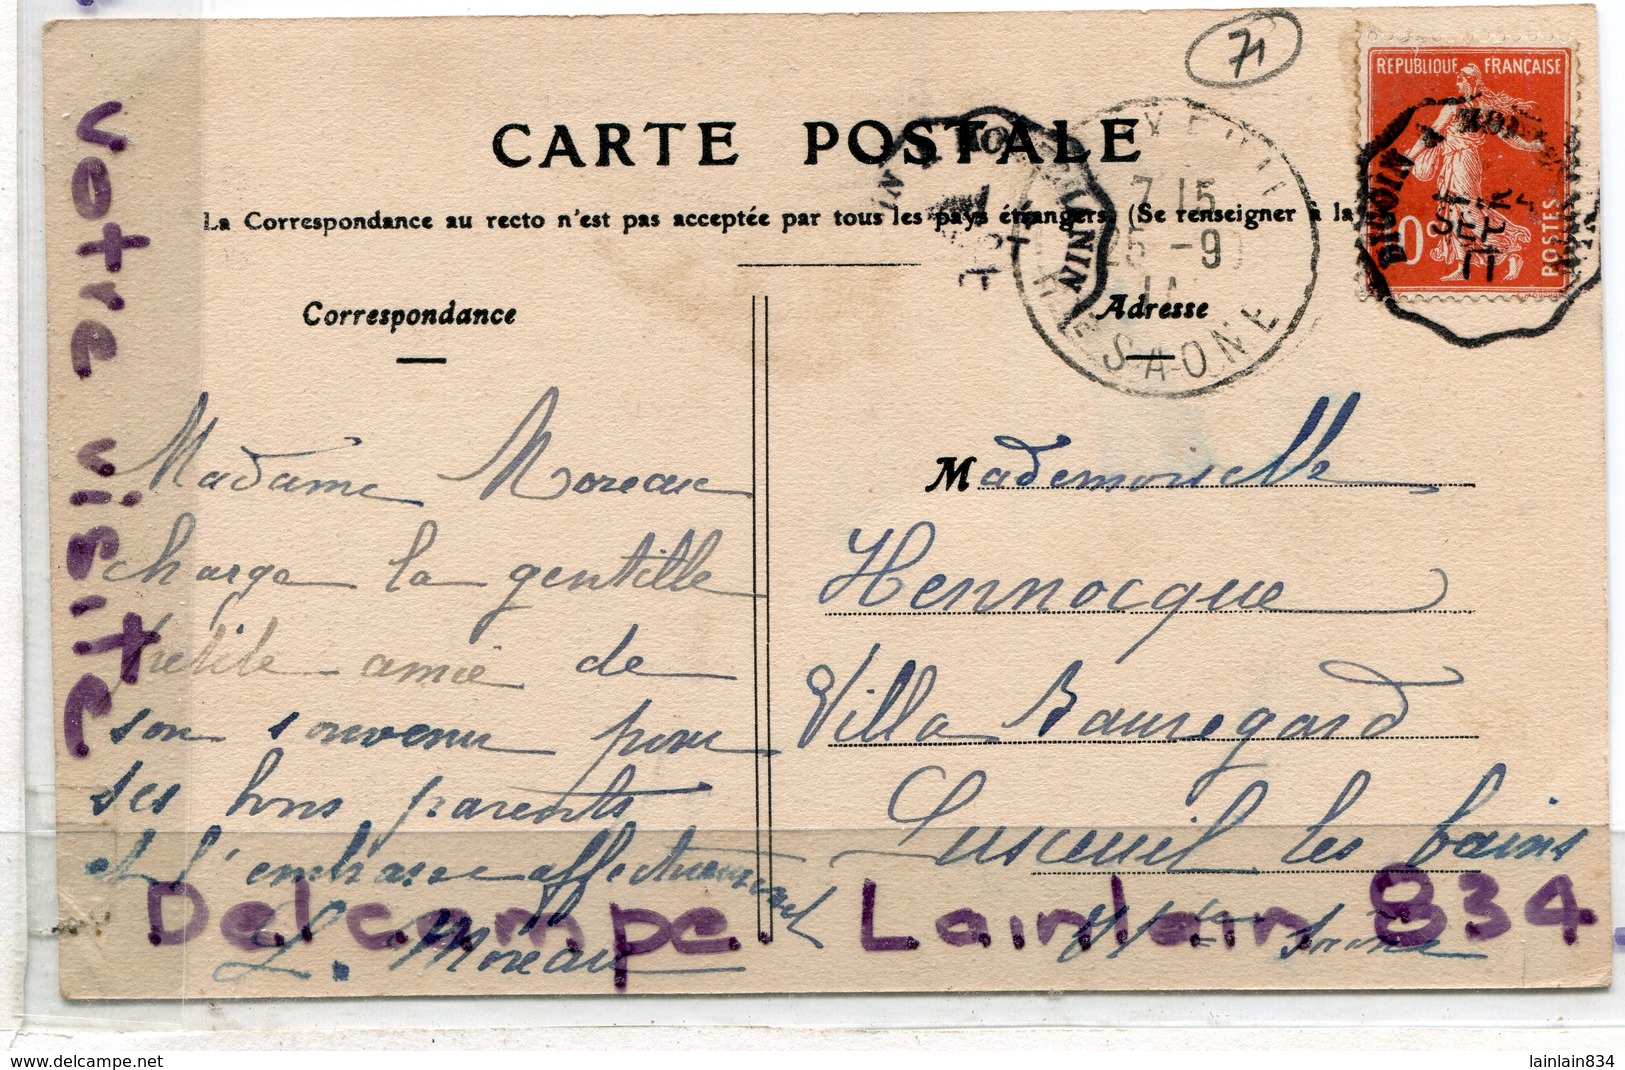 71
REPUBLIQUE FRANÇAISE
POSTES
DIGOIN A MOU
SEPT
11
CARTE POSTALE
7 15
-9
Hte SAONE
La Correspondance au recto n'est pas acceptée par tous les pays étrangers. (Se renseigner à la
Correspondance
Madame Moreau
charge la gentille
petite amie de
son souvenir pour
ses bons parents
et l'embrasse affectueusement
L. Moreau
Adresse
Mademoiselle
Hennocque
Villa Beauregard
Luxeuil les bains
Hte Saône
votre visite.
Delcampe Lainlain 834.
www.delcampe.net
lainlain834